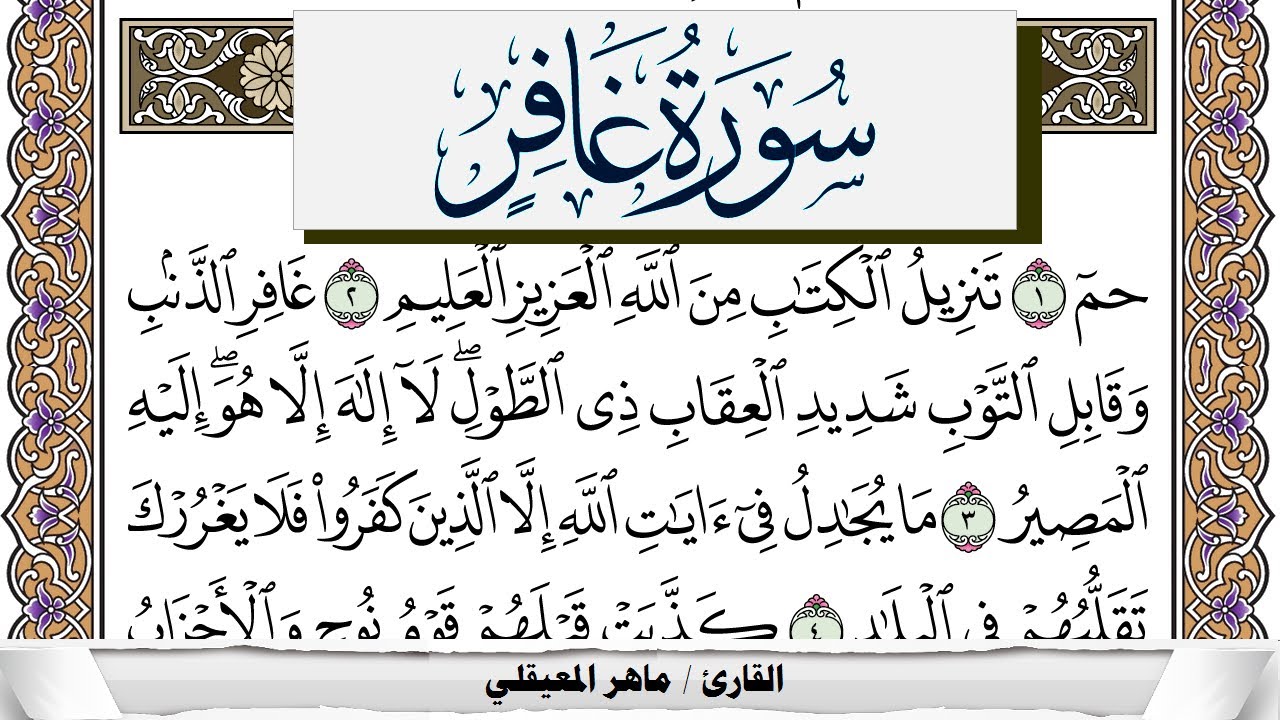 سُورَةُ غَافِرٍ
حمٓ ١ تَنزِيلُ ٱلْكِتَٰبِ مِنَ ٱللَّهِ ٱلْعَزِيزِ ٱلْعَلِيمِ ٢ غَافِرِ ٱلذَّنۢبِ
وَقَابِلِ ٱلتَّوْبِ شَدِيدِ ٱلْعِقَابِ ذِى ٱلطَّوْلِۖ لَآ إِلَٰهَ إِلَّا هُوَۖ إِلَيْهِ
ٱلْمَصِيرُ ٣ مَا يُجَٰدِلُ فِىٓ ءَايَٰتِ ٱللَّهِ إِلَّا ٱلَّذِينَ كَفَرُوا۟ فَلَا يَغْرُرْكَ
تَقَلُّبُهُمْ فِى ٱلْبِلَٰدِ ٤ كَذَّبَتْ قَبْلَهُمْ قَوْمُ نُوحٍ وَٱلْأَحْزَابُ
القارئ / ماهر المعيقلي